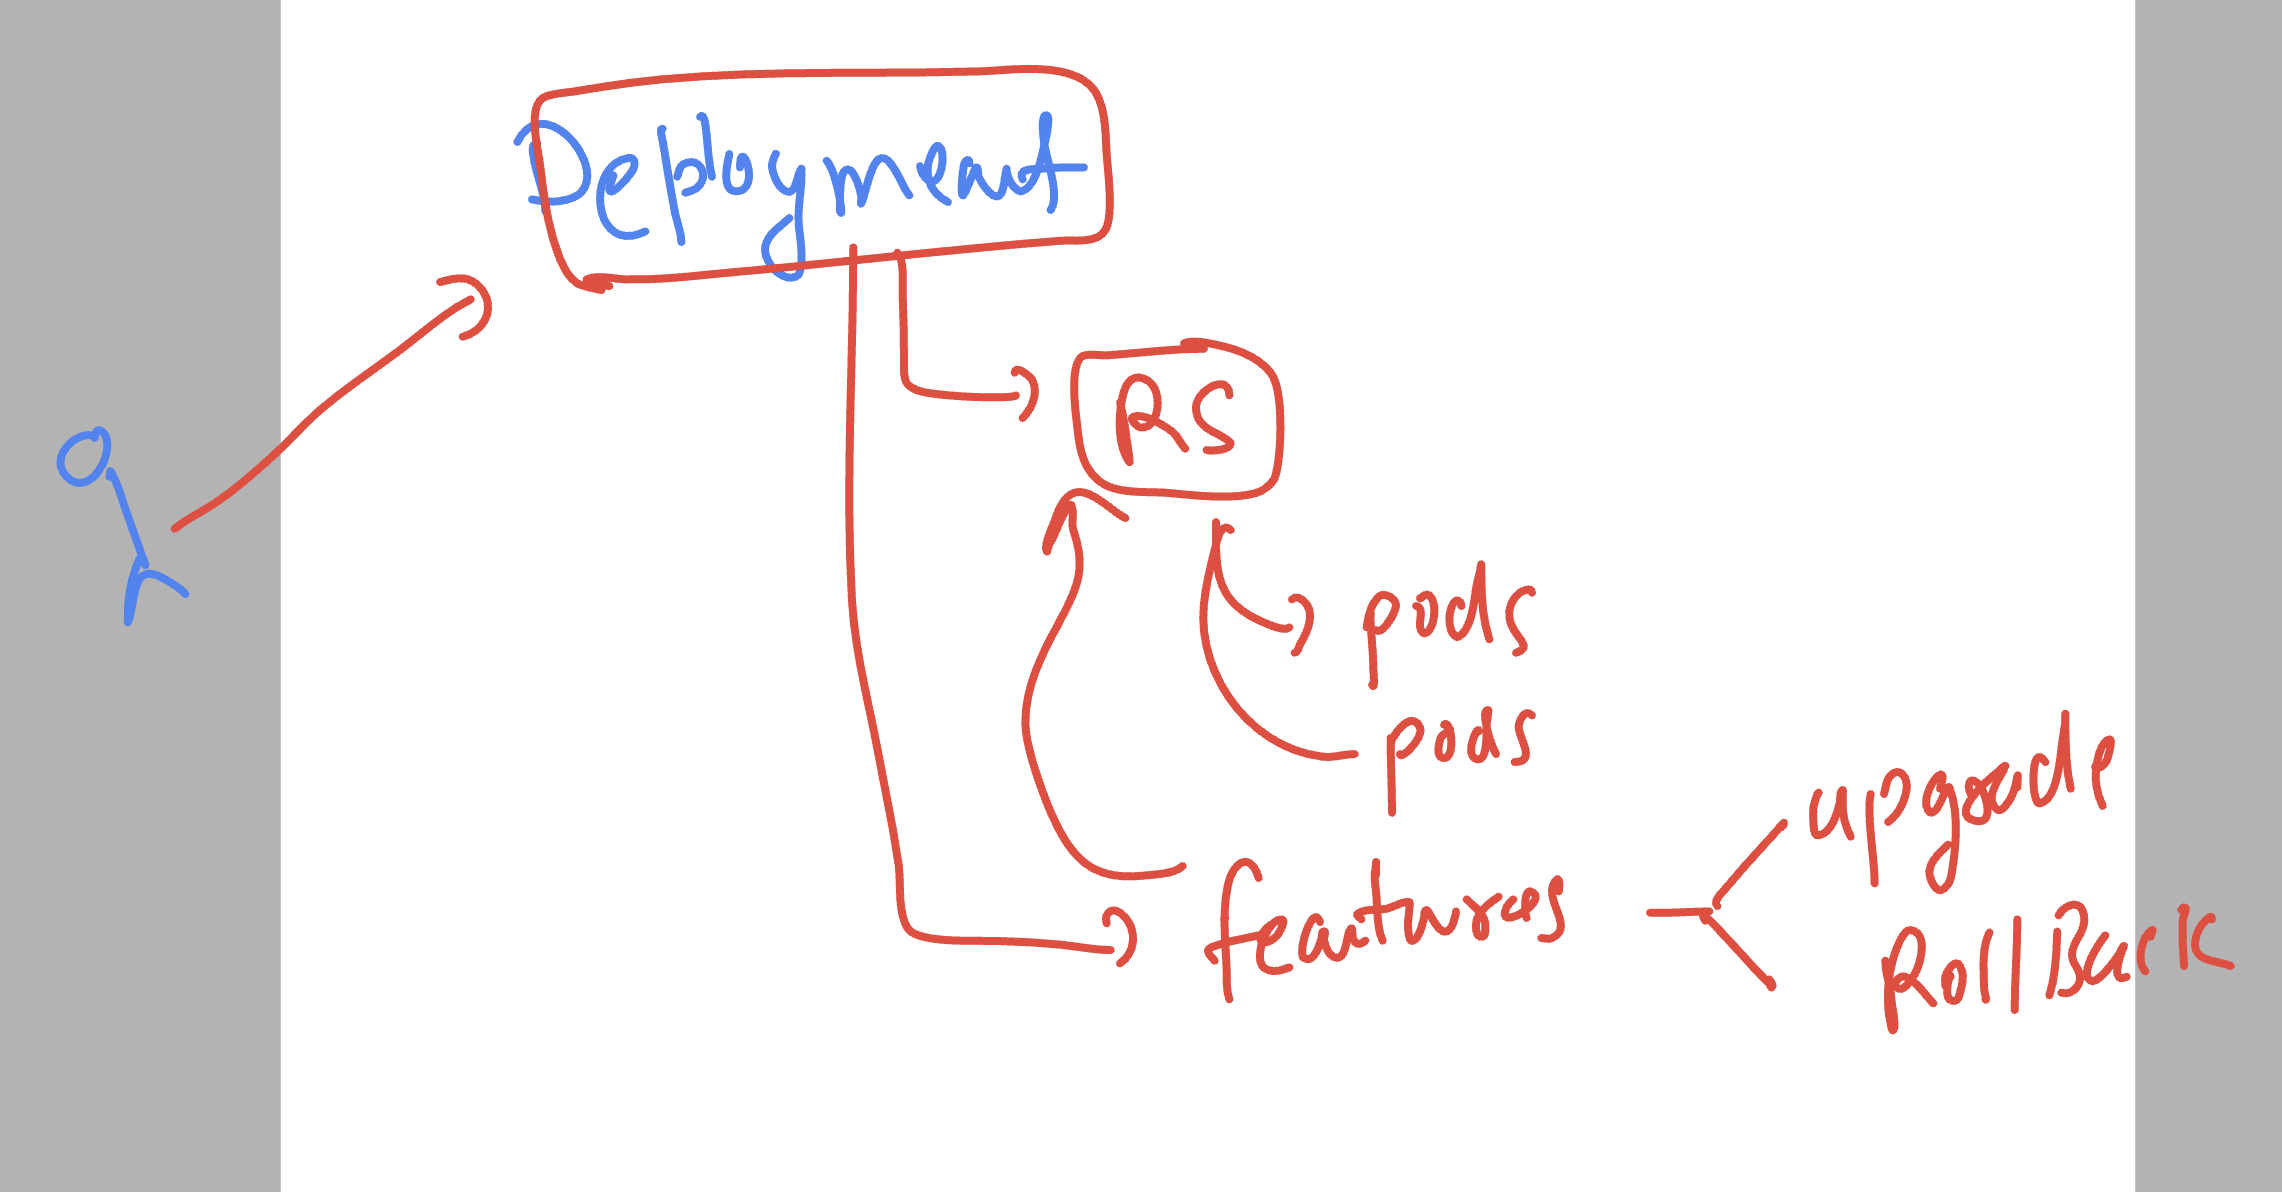 Deployment
RS
pods
pods
features
upgrade
RollBack